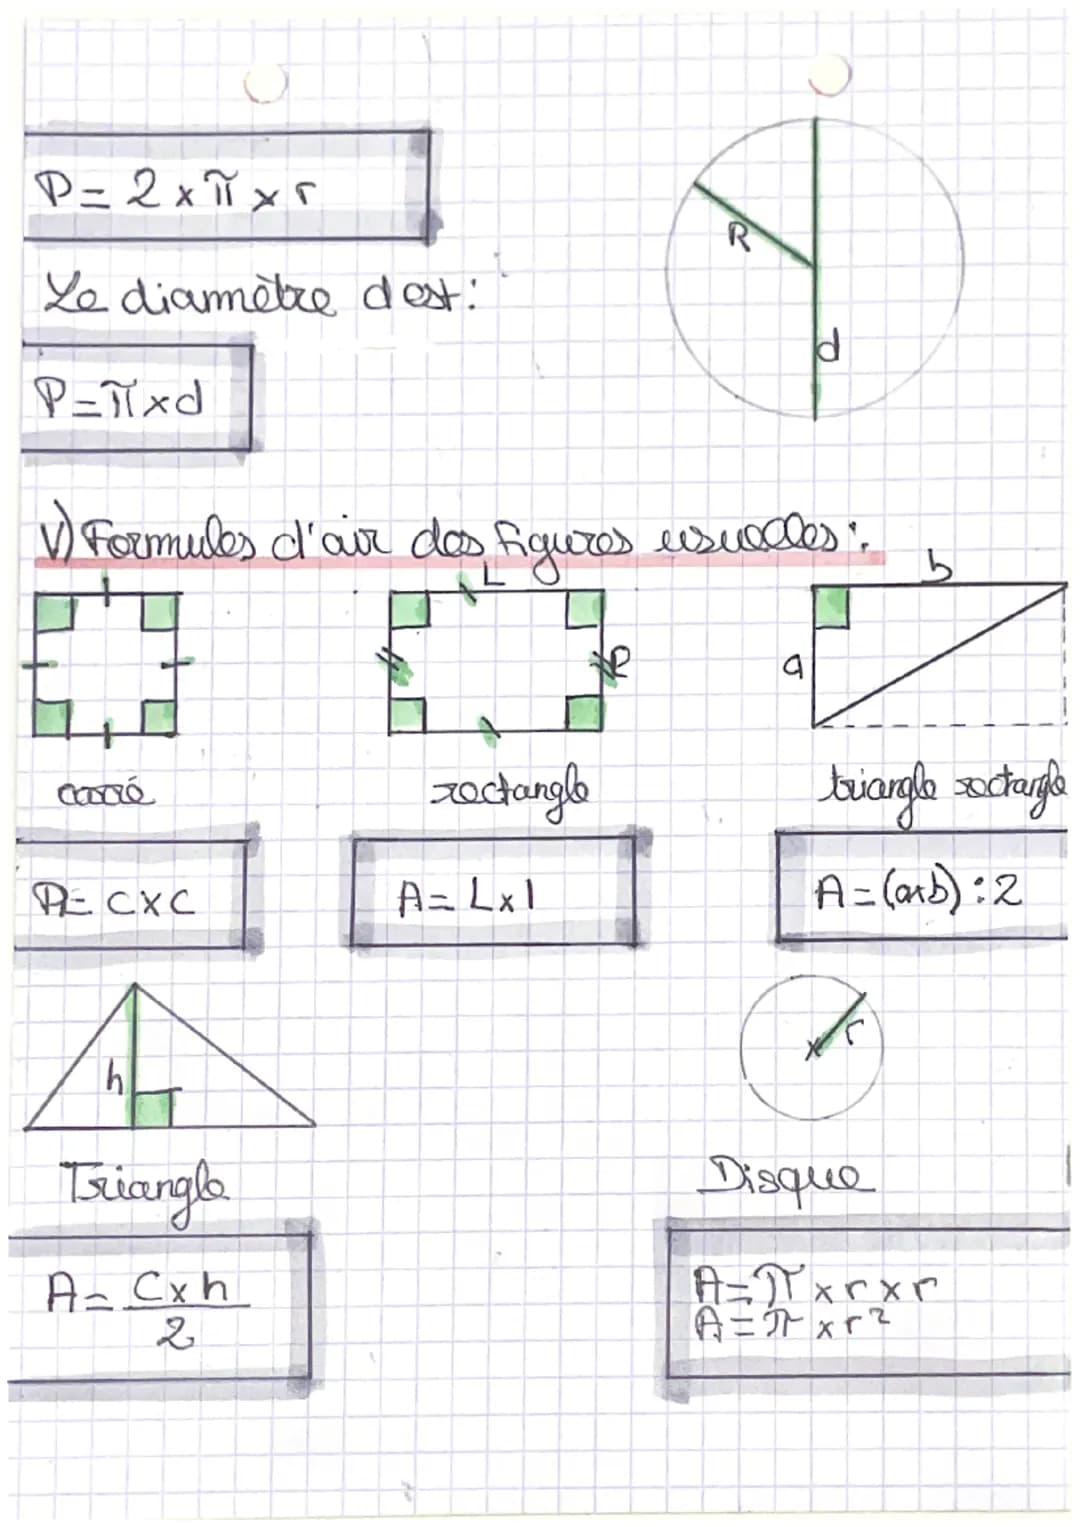 P = 2 x π x r
R
d
Le diamètre d est:
P = π x d
V) Formules d'air des figures usuelles:
L
l
b
a
carré
rectangle
triangle rectangle
A = c x c
A = L x l
A = (axb) : 2
h
r
Triangle
Disque
A = C x h
2
A = π x r x r
A = π x r²